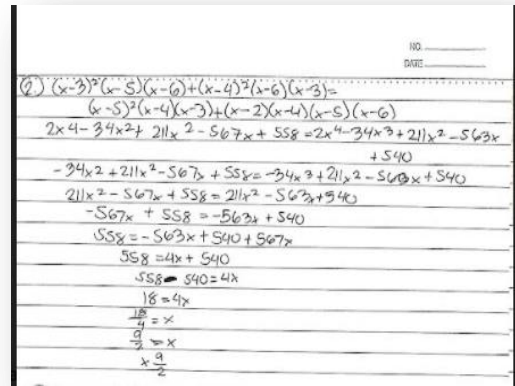 NO.
DATE
2. (x-3)²(x-5)(x-6)+(x-4)²(x-6)(x-3)=
(x-5)²(x-4)(x-3)+(x-2)(x-4)(x-5)(x-6)
2x4-34x2+ 211x2-567x+558=2x4-34x3+211x2-563x
+540
-34x2+211x2-567x+558=-34x3+211x2-563x+540
211x2-567x+558=211x2-563x+540
-567x+558=-563x+540
558=-563x+540+567x
558=4x+540
558-540=4x
18=4x
18/4=x
9/2=x
x 9/2